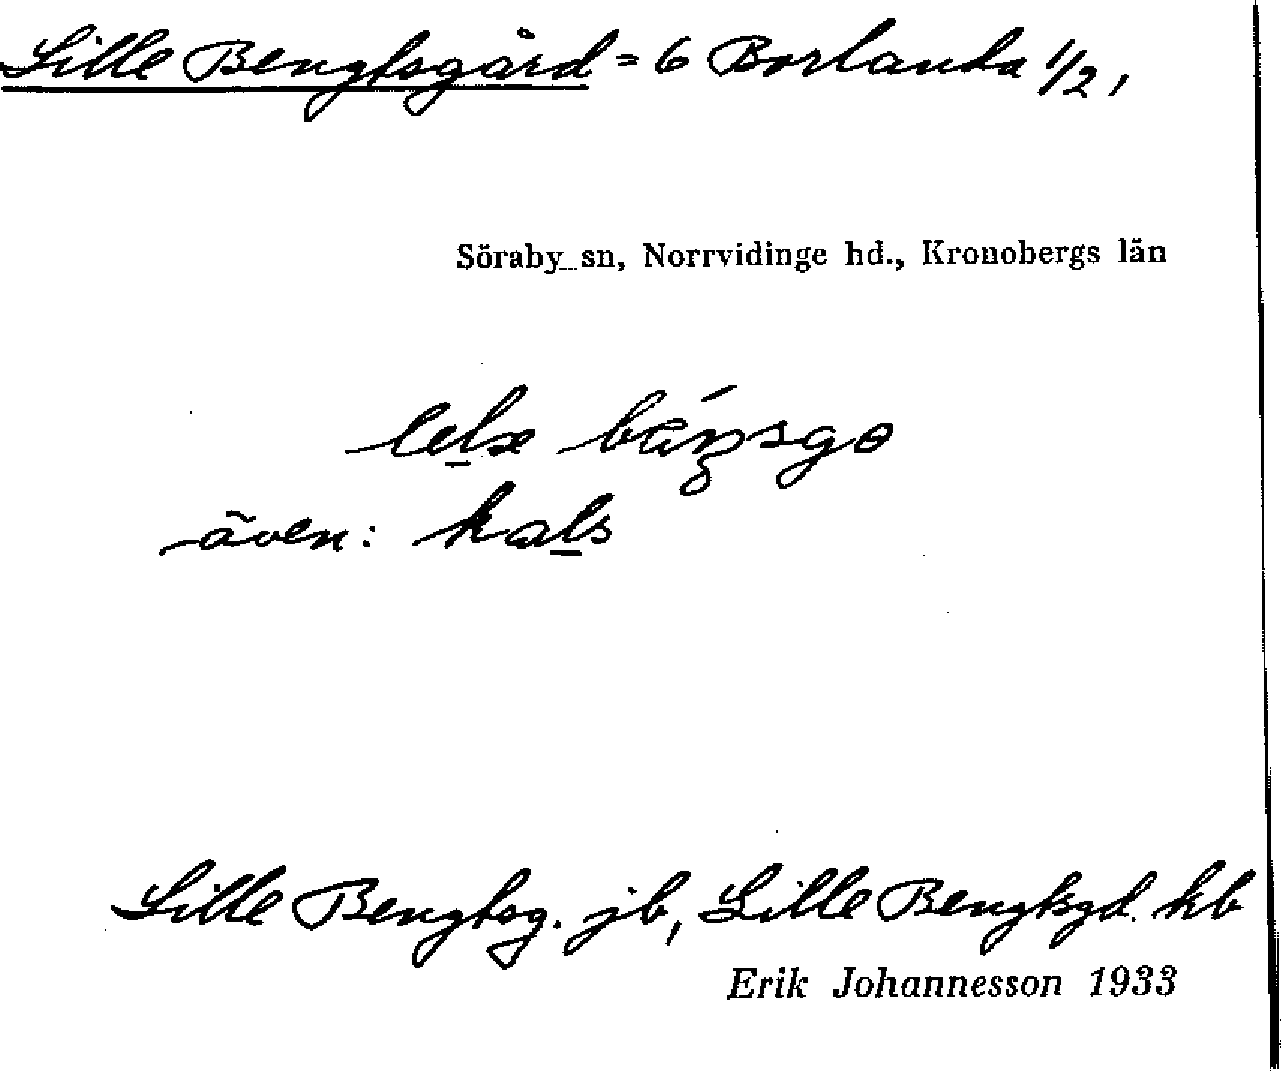 Lille Bengtsgård = 6 Borlanda 1/2,
Söraby sn, Norrvidinge hd., Kronobergs län
även: kals
Lille Bengtsg. jb, Lille Bengtsgd. kb
Erik Johannesson 1933